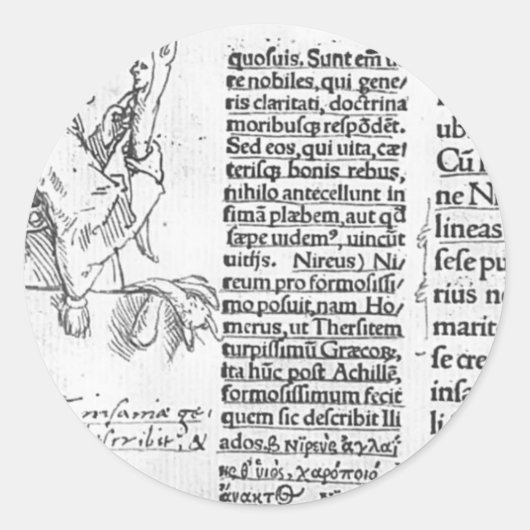 quosuis. Sunt em̄ u
re nobiles, qui gene/
ris claritati, doctrina
moribusꝗ respōdēt.
Sed eos, qui uita, cæ/
terisꝗ bonis rebus,
nihilo antecellunt in
simā plæbem, aut qđ
sæpe uidemꝰ, uincūt
uitijs. Nireus) Ni/
reum pro formosissi/
mo posuit, nam Ho/
merus, ut Thersitem
turpissimū Græcoꝝ,
ita hūc post Achillē,
formosissimum fecit
quem sic describit Ili
ados.β Νιρευς ἀγλαΐ
ης θ᾽ υἱὸς, χαρόποιό
ἄνακτ
insaniæ ge/
scribit, &
ubi
Cū
ne Ni
lineas
sese pu
rius ne
marit
se cre
insa
li